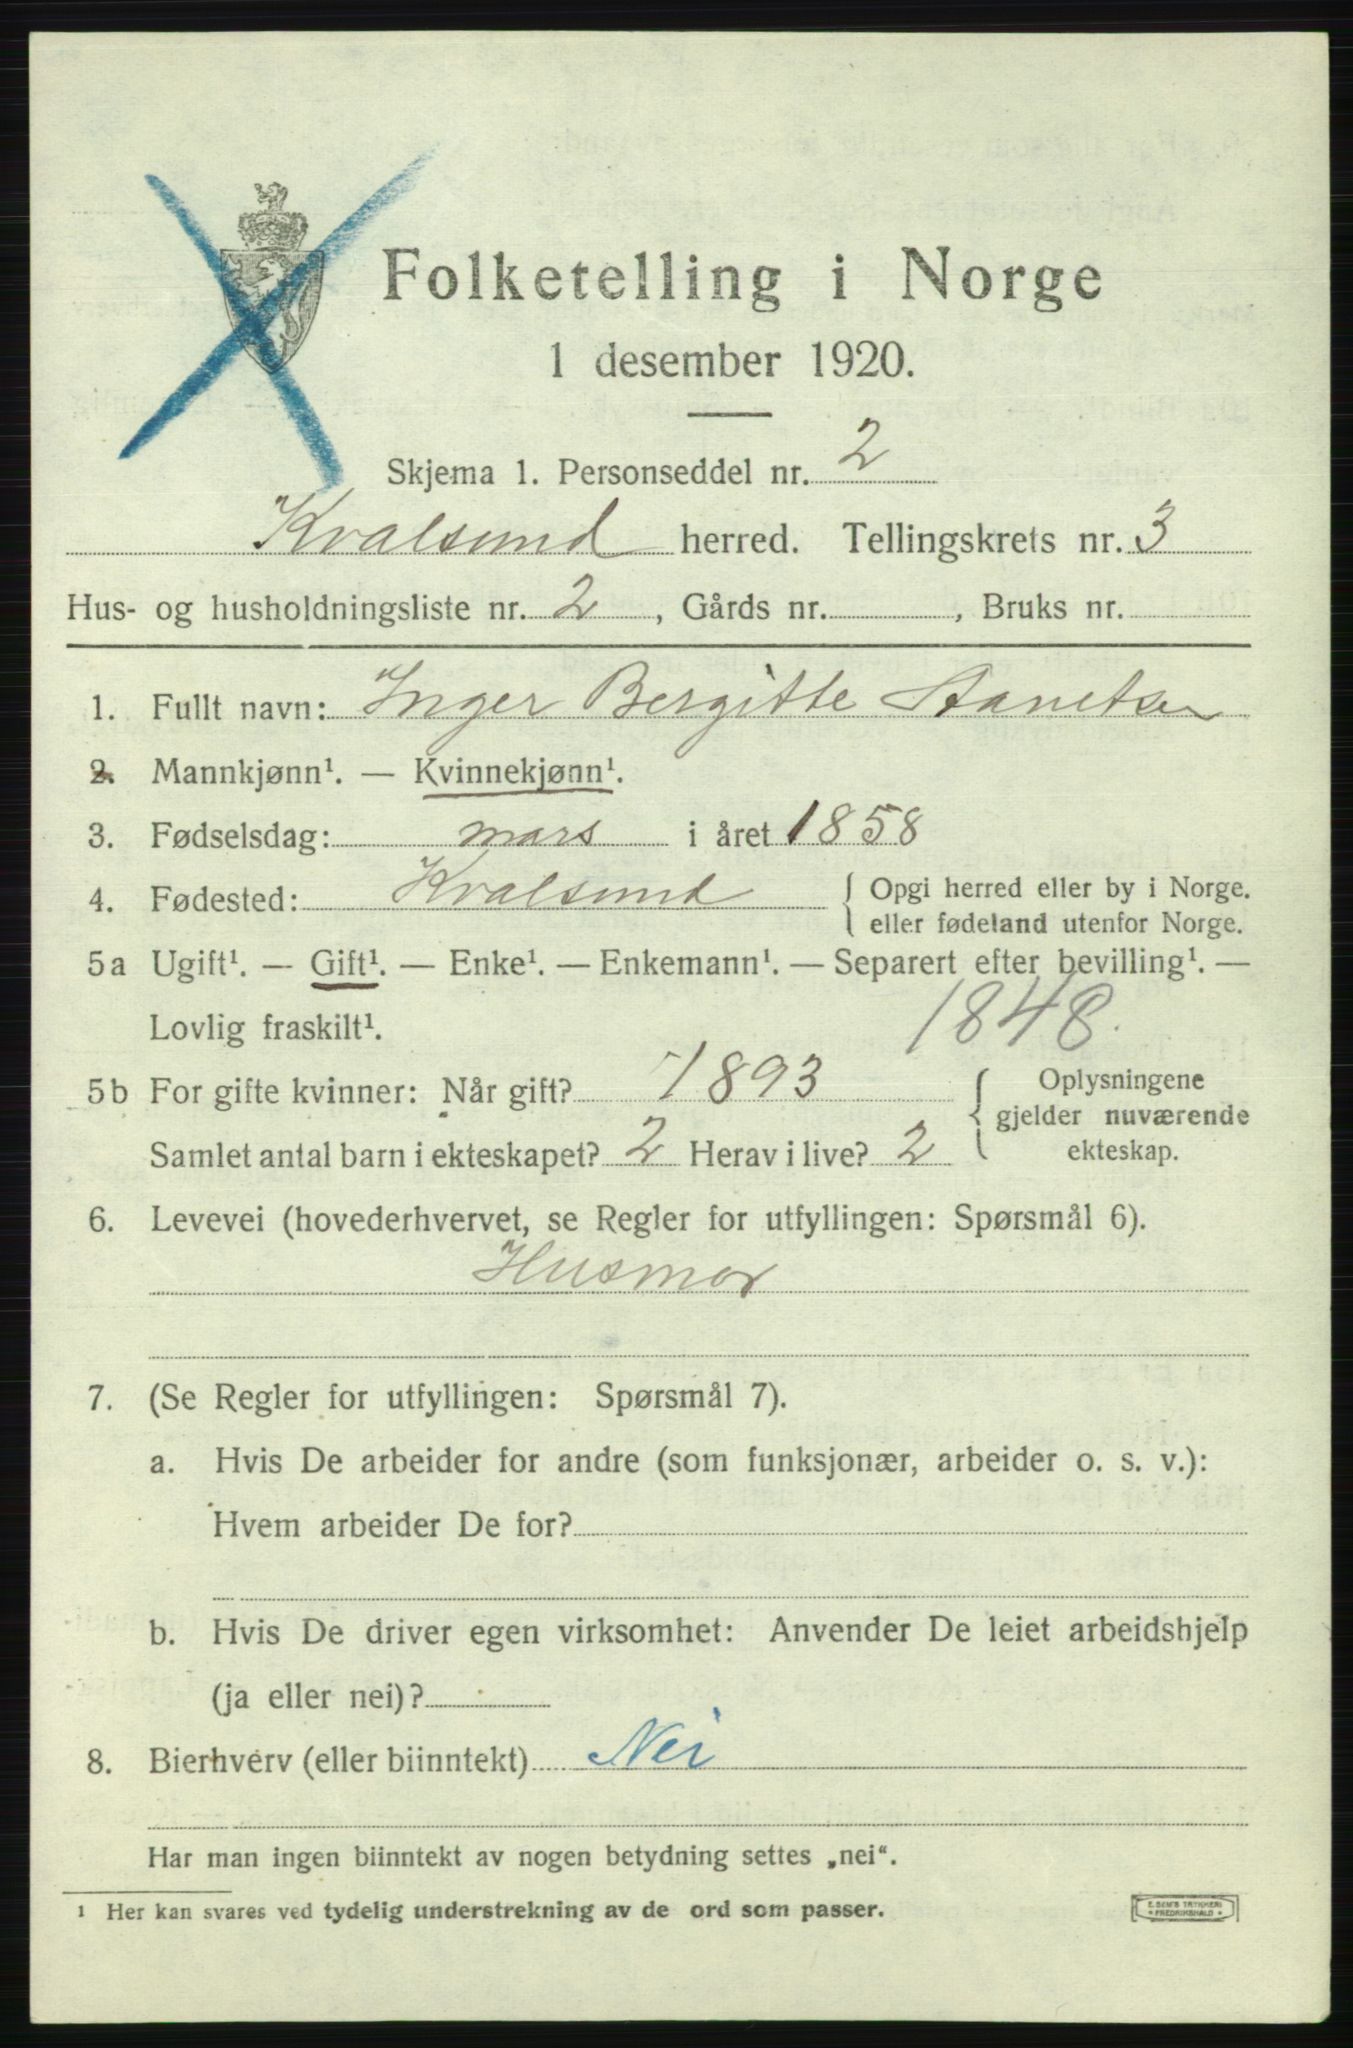 Folketelling i Norge
1 desember 1920.
Skjema 1. Personseddel nr. 2
Kvalsund herred. Tellingskrets nr. 3
Hus- og husholdningsliste nr. 2, Gårds nr. , Bruks nr.
1. Fullt navn: Inger Bergitte
2. Mannkjønn¹. — Kvinnekjønn¹.
3. Fødselsdag: mars i året 1858
4. Fødested: Kvalsund { Opgi herred eller by i Norge.
eller fødeland utenfor Norge.
5a Ugift¹. — Gift¹. — Enke¹. — Enkemann¹. — Separert efter bevilling¹. —
Lovlig fraskilt¹. 1848.
5b For gifte kvinner: Når gift? 1893 { Oplysningene
gjelder nuværende
Samlet antal barn i ekteskapet? 2 Herav i live? 2 ekteskap.
6. Levevei (hovederhvervet, se Regler for utfyllingen: Spørsmål 6).
Husmor
7. (Se Regler for utfyllingen: Spørsmål 7).
a. Hvis De arbeider for andre (som funksjonær, arbeider o. s. v.):
Hvem arbeider De for?
b. Hvis De driver egen virksomhet: Anvender De leiet arbeidshjelp
(ja eller nei)?
8. Bierhverv (eller biinntekt) Nei
Har man ingen biinntekt av nogen betydning settes „nei“.
1 Her kan svares ved tydelig understrekning av de ord som passer.
E. SEM'S TRYKKERI
• FREDRIKSHALD •